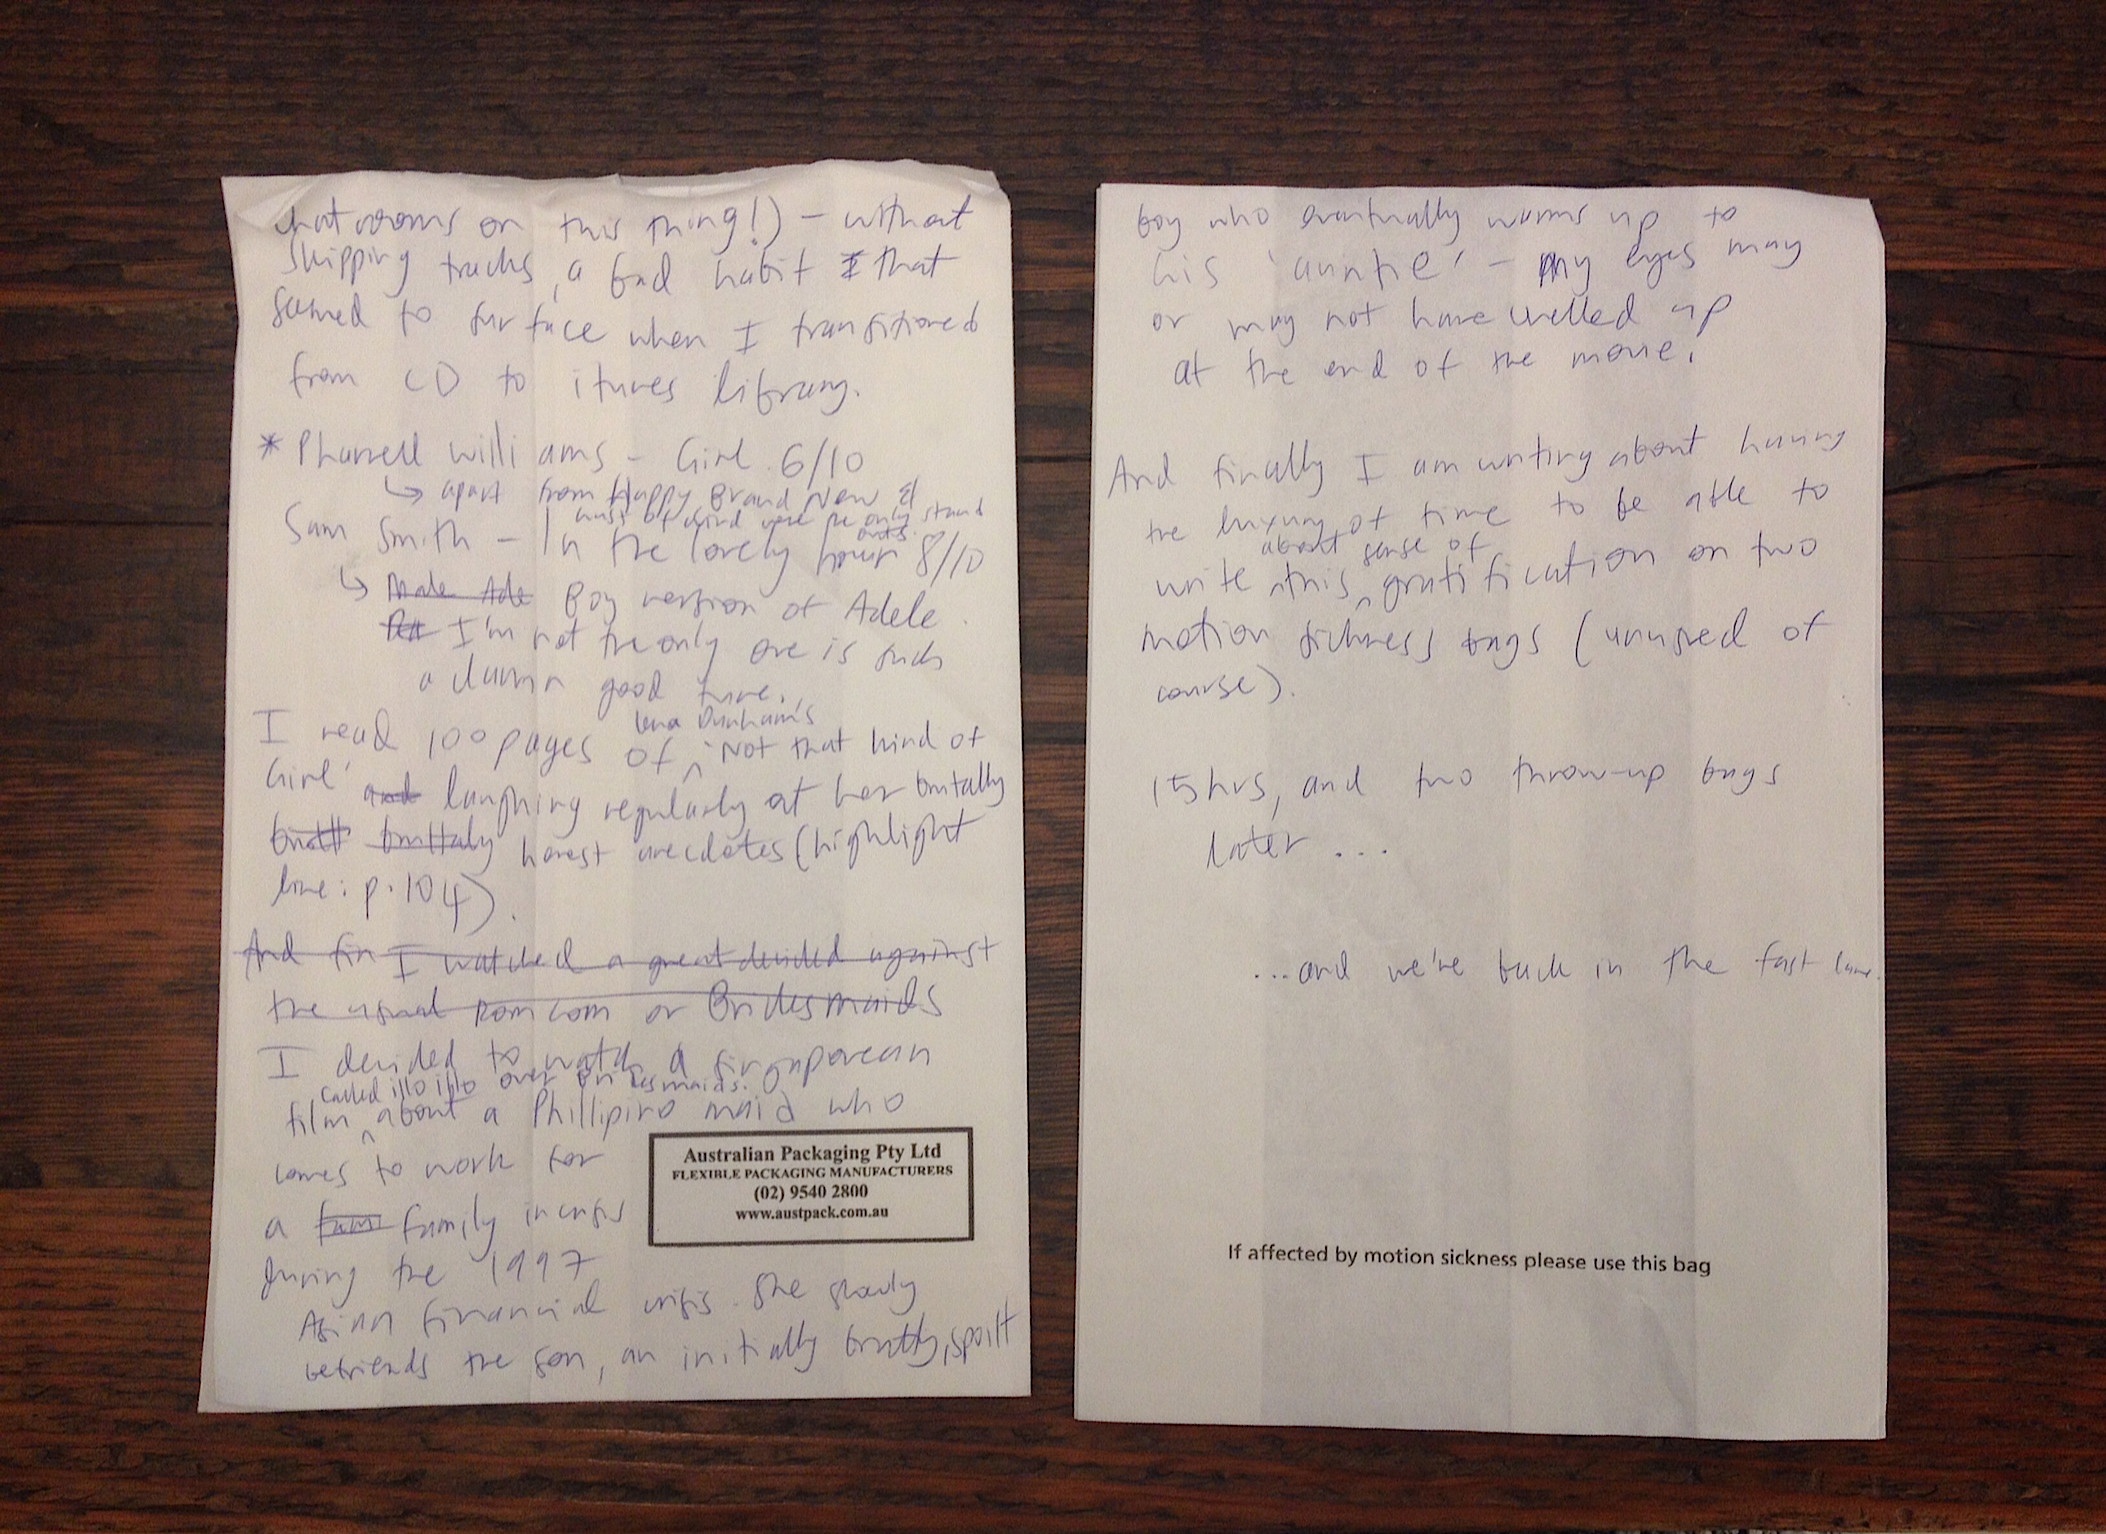 chatrooms on this thing!) – without
skipping tracks, a bad habit that
seemed to surface when I transitioned
from CD to itunes library.
* Pharrell Williams – Girl. 6/10
↳ apart from Happy Brand New &
Gust of Wind were the only stand
outs.
Sam Smith – In the lovely hour 8/10
↳ Male Ade Boy version of Adele.
I'm not the only one is such
a damn good tune.
Lena Dunham's
I read 100 pages of ^ 'Not that kind of
Girl' and laughing regularly at her brutally
bruttaly honest anecdotes (highlight
line: p.104).
And fin I watched a great decided against
the usual rom com or Bridesmaids
I decided to watch a Singaporean
called illo illo over Bridesmaids.
film ^ about a Phillipino maid who
comes to work for
a fam family in crisis
during the 1997
Asian financial crisis. She slowly
befriends the son, an initially bratty, spoilt
Australian Packaging Pty Ltd
FLEXIBLE PACKAGING MANUFACTURERS
(02) 9540 2800
www.austpack.com.au
boy who eventually warms up to
his 'auntie' – my eyes may
or may not have welled up
at the end of the movie.
And finally I am writing about having
the luxury of time to be able to
about sense of
write ^ this ^ gratification on two
motion sickness bags (unused of
course).
15hrs, and two throw-up bags
later ...
...and we're back in the fast lane.
If affected by motion sickness please use this bag